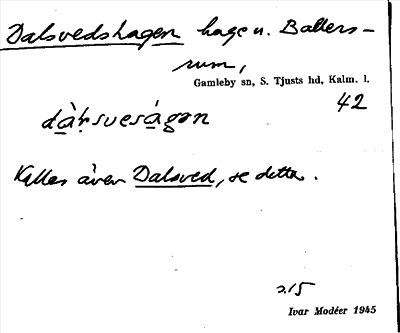 Dalsvedshagen hage u. Ballers-
rum,
Gamleby sn, S. Tjusts hd, Kalm. l.
42
dàḷsvesàgən
Kallas även Dalsved, se detta.
215
Ivar Modéer 1945